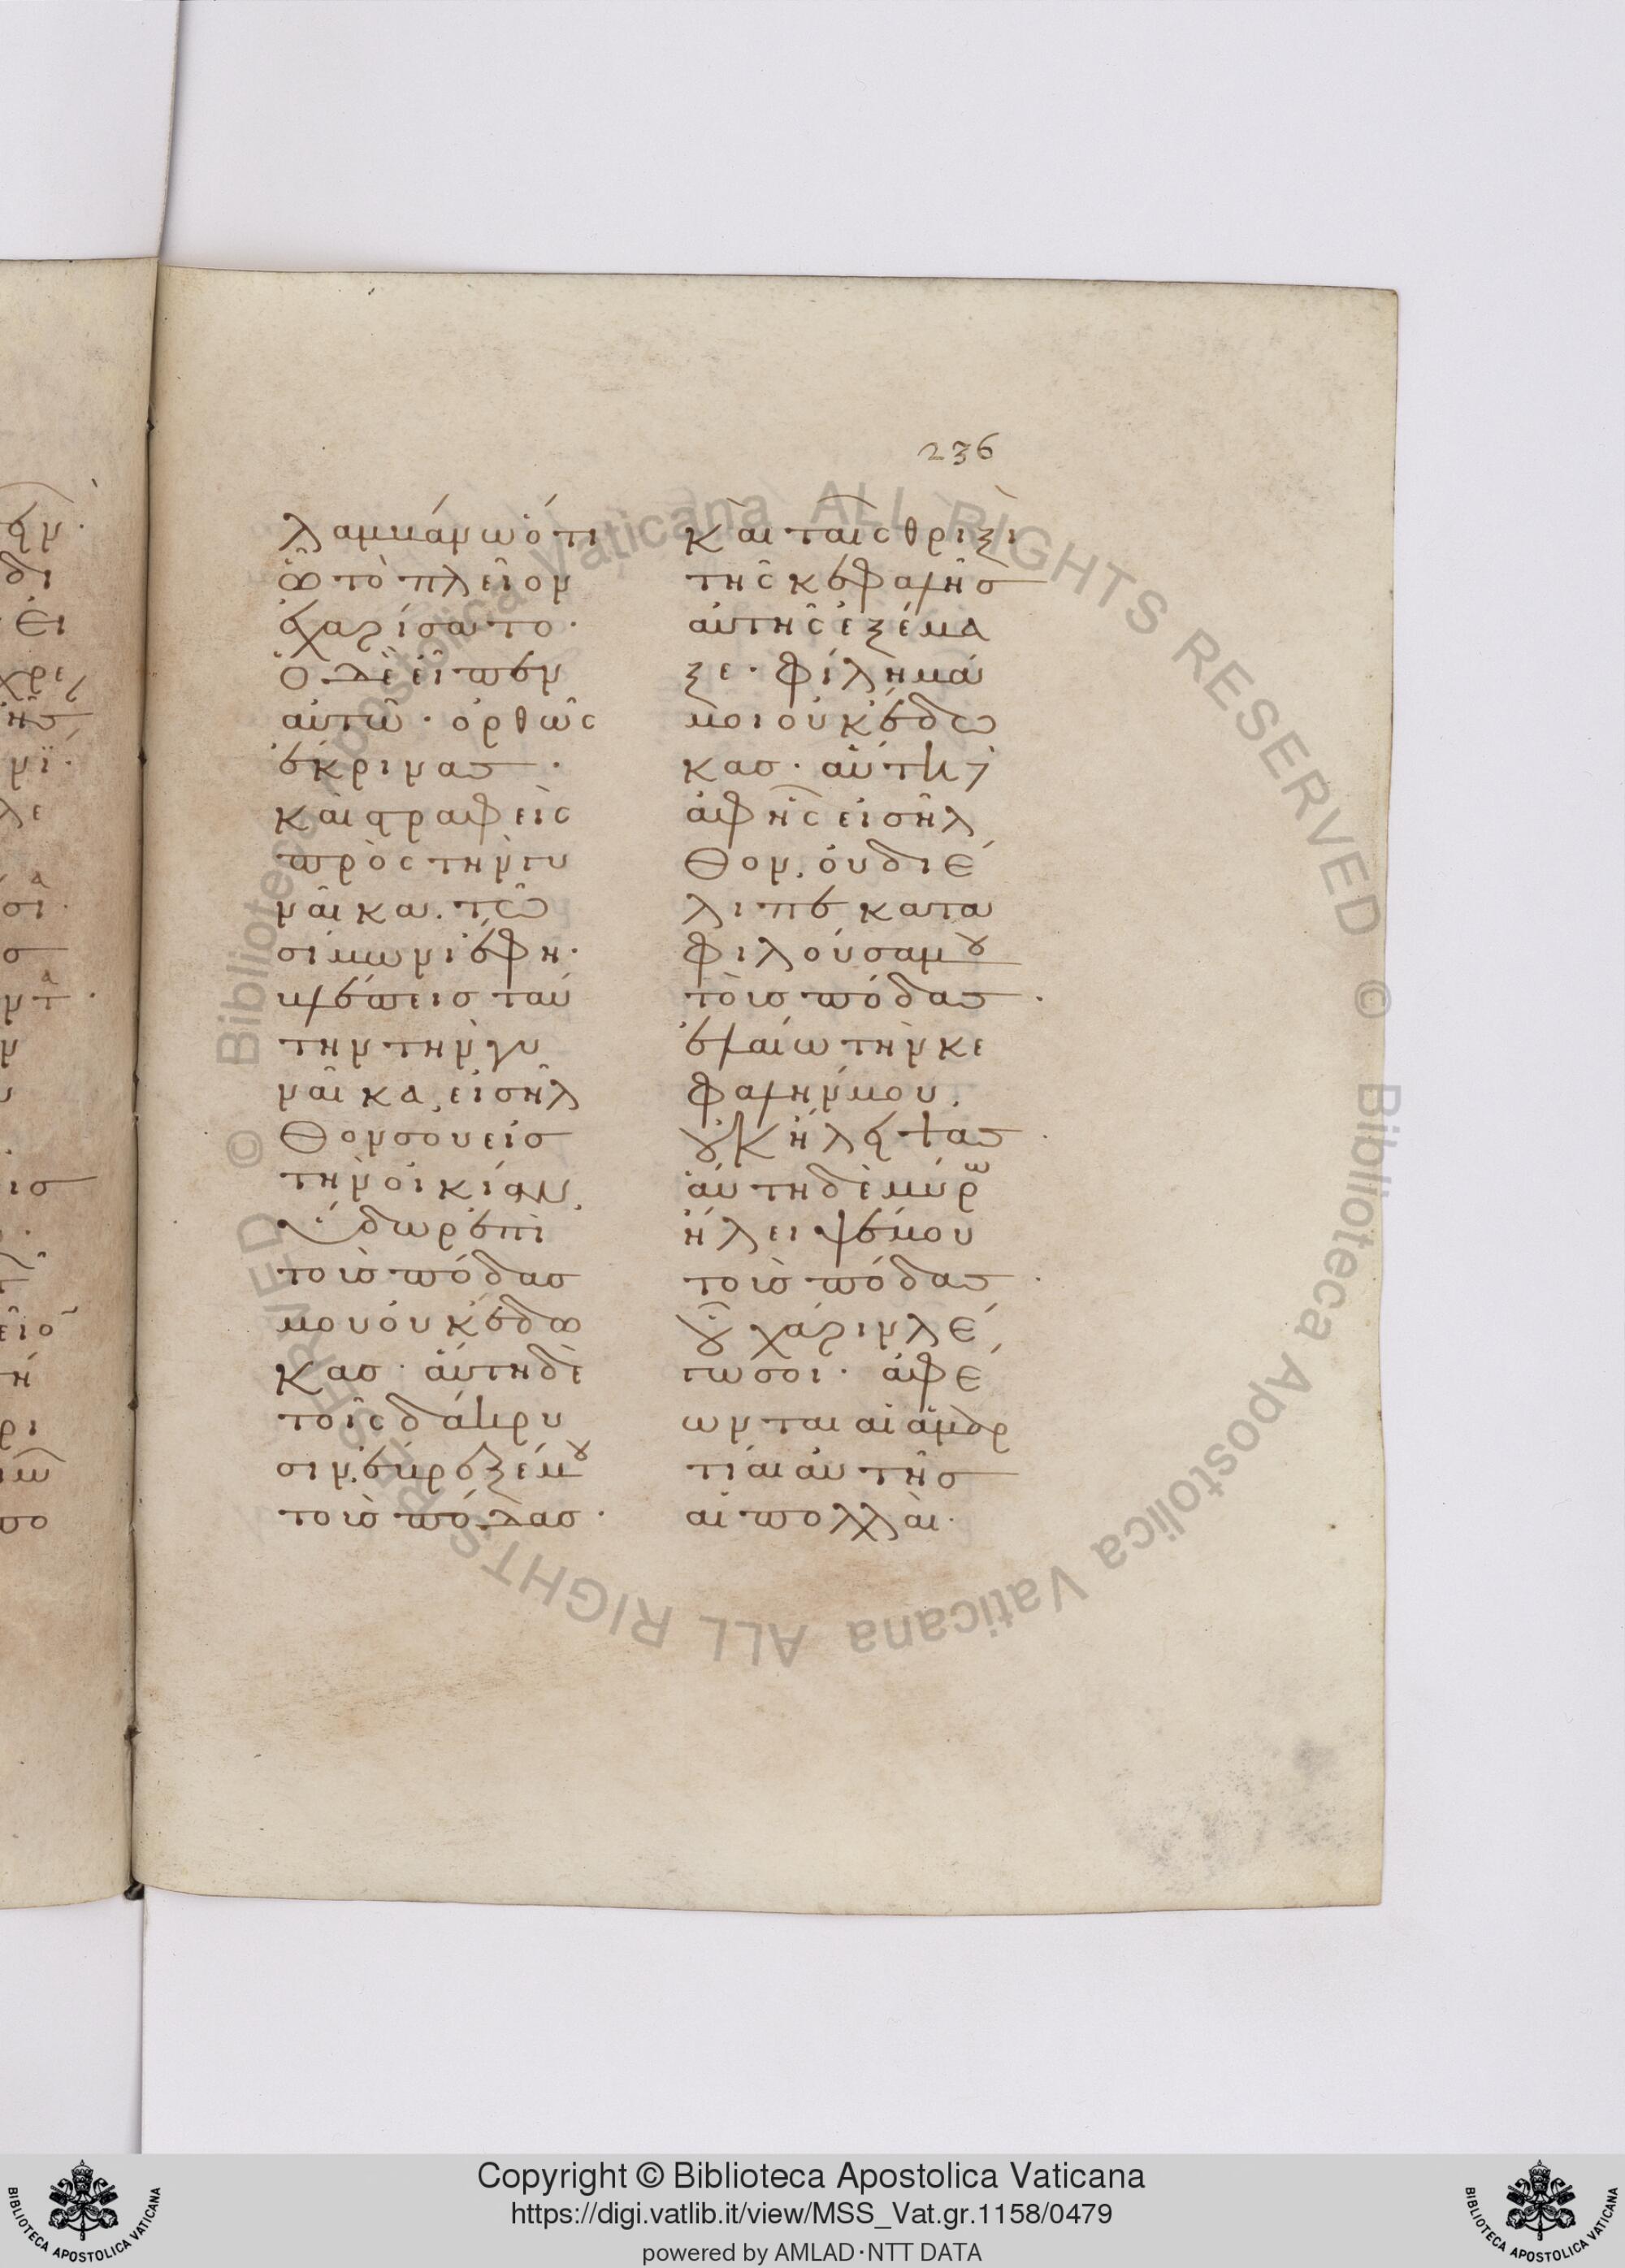 236
λαμβάνω ὅτι
ὧ τὸ πλεῖον
ἐχαρίσατο·
ὁ δὲ εἶπεν
αὐτῶ· ὀρθῶς
ἔκρινας·
καὶ στραφεὶς
πρὸς τὴν γυ
ναῖκα. τῶ
σίμωνι ἔφη·
βλέπεις ταύ
την τὴν γυ
ναῖκα, εἰσῆλ
θον σου εἰς
τὴν οἰκίαν,
ὕδωρ ἐπὶ
τοὺς πόδας
μου οὐκ ἔδω
κας· αὕτη δὲ
τοῖς δάκρυ
σιν ἔβρεξέ μου
τοὺς πόδας·
καὶ ταῖς θριξὶ
τῆς κεφαλῆς
αὐτῆς ἐξέμα
ξε· φίλημά
μοι οὐκ ἔδω
κας· αὕτη δὲ
ἀφ ἧς εἰσῆλ
θον, οὐ διέ
λιπε κατα
φιλοῦσα μου
τοὺς πόδας·
ἐλαίω τὴν κε
φαλήν μου,
οὐκ ἤλειψας·
αὕτη δὲ μύρω
ἤλειψέ μου
τοὺς πόδας·
οὗ χάριν λέ
γω σοι· ἀφέ
ωνται αἱ ἁμαρ
τίαι αὐτῆς
αἱ πολλαὶ·
Copyright © Biblioteca Apostolica Vaticana
https://digi.vatlib.it/view/MSS_Vat.gr.1158/0479
powered by AMLAD·NTT DATA
BIBLIOTECA APOSTOLICA VATICANA
BIBLIOTECA APOSTOLICA VATICANA
© Biblioteca Apostolica Vaticana ALL RIGHTS RESERVED © Biblioteca Apostolica Vaticana ALL RIGHTS RESERVED